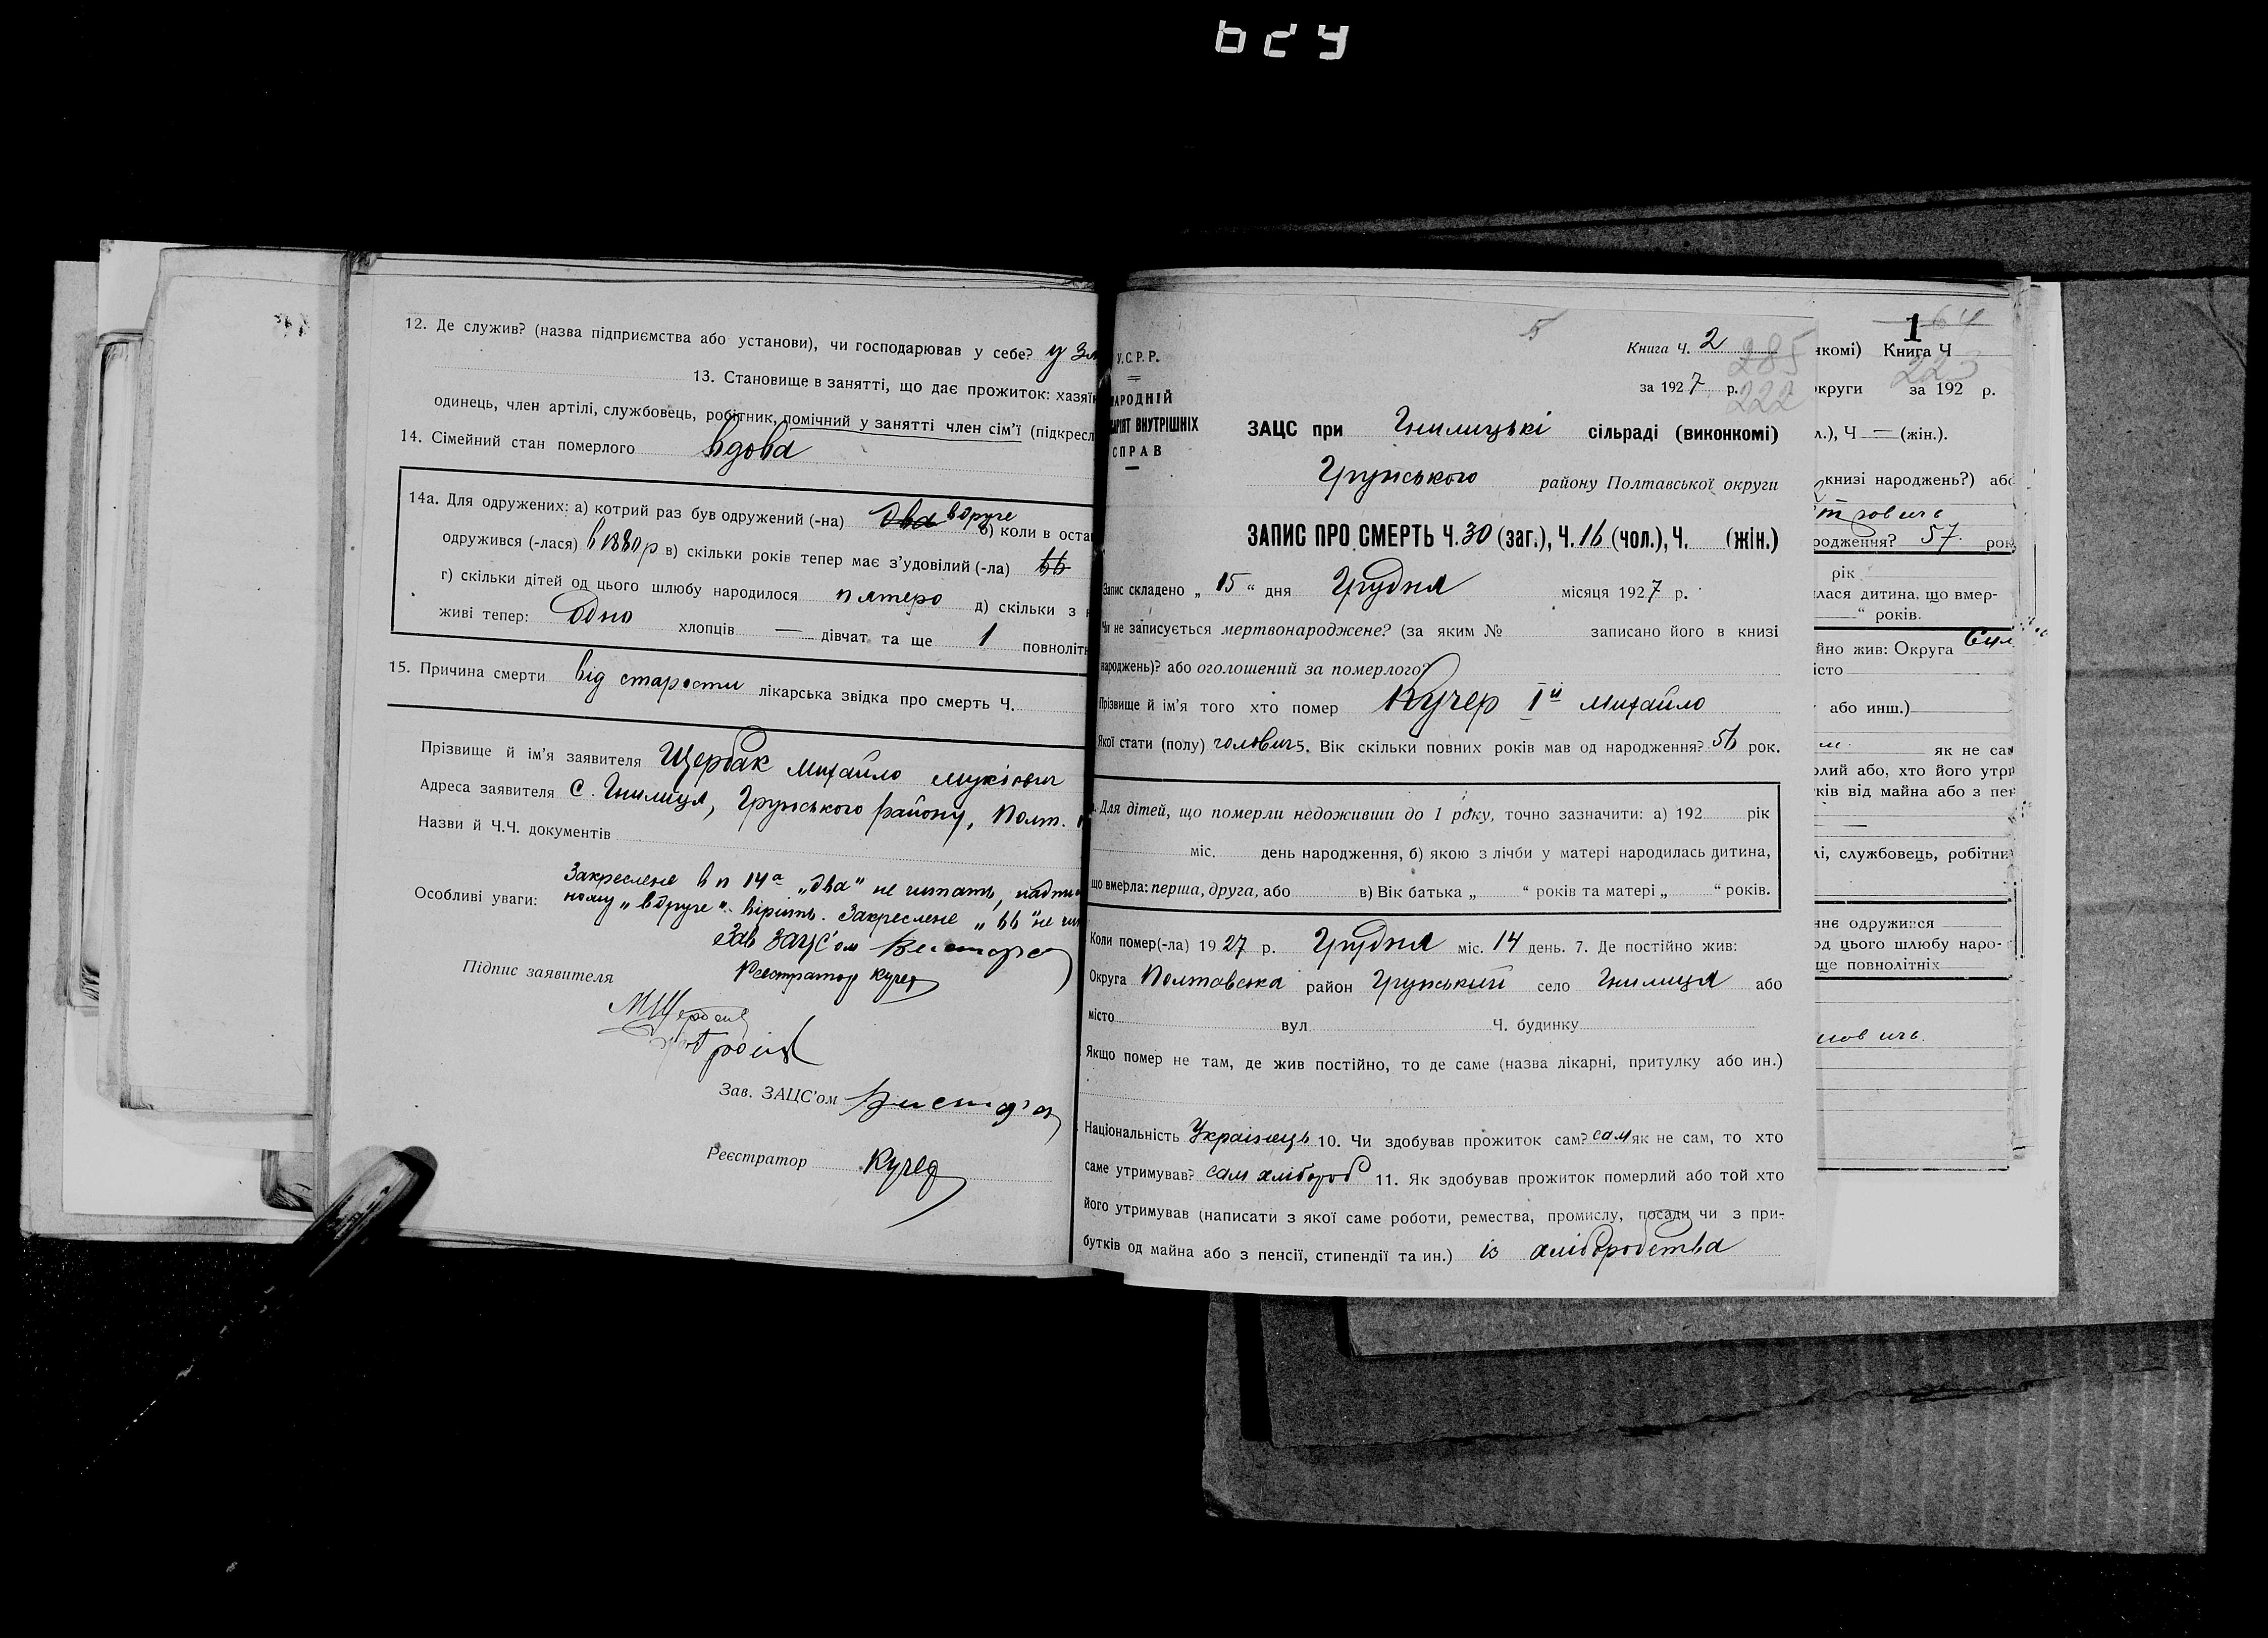 12. Де служив? (назва підприємства або установи), чи господарював у себе? у
13. Становище в занятті, що дає прожиток: хазяїн
одинець, член артілі, службовець, робітник, помічний у занятті член сім'ї (підкресл
14. Сімейний стан померлого вдова
14а. Для одружених: а) котрий раз був одружений (-на) два вдруге б) коли в оста
одружився (-лася) в 1880 р в) скільки років тепер має з'удовілий (-ла) 66
г) скільки дітей од цього шлюбу народилося пятеро д) скільки з н
живі тепер: одно хлопців — дівчат та ще 1 повноліт
15. Причина смерти від старости лікарська звідка про смерть Ч.
Прізвище й ім'я заявителя Щербак Михайло
Адреса заявителя с. Гнилиця, Грунського району, Полт.
Назви й Ч.Ч. документів
Особливі уваги: Закреслене в п 14а „два" не читать,
ному „вдруге" вірить. Закреслене „66" не
Зав ЗАЦС'ом
Реєстратор Кучер
Підпис заявителя
Зав. ЗАЦС'ом
Реєстратор Кучер
У.С.Р.Р.
НАРОДНІЙ
АРІЯТ ВНУТРІШНІХ
СПРАВ
Книга Ч. 2
285
за 1927 р.
222
ЗАЦС при Гнилицькі сільраді (виконкомі)
Грунського району Полтавської округи
ЗАПИС ПРО СМЕРТЬ Ч. 30 (заг.), Ч. 16 (чол.), Ч. (жін.)
Запис складено „15" дня Грудня місяця 1927 р.
Чи не записується мертвонароджене? (за яким № записано його в книзі
народжень)? або оголошений за померлого?
Прізвище й ім'я того хто помер Кучер Iй Михайло
Якої стати (полу) чолович 5. Вік скільки повних років мав од народження? 56 рок.
Для дітей, що померли недоживши до 1 року, точно зазначити: а) 192 рік
міс. день народження, б) якою з лічби у матері народилась дитина,
що вмерла: перша, друга, або в) Вік батька „ " років та матері „ " років.
Коли помер(-ла) 1927 р. Грудня міс. 14 день. 7. Де постійно жив:
Округа Полтавська район Грунський село Гнилиця або
місто вул Ч. будинку
Якщо помер не там, де жив постійно, то де саме (назва лікарні, притулку або ин.)
Національність Українець 10. Чи здобував прожиток сам? сам як не сам, то хто
саме утримував? сам хлібороб 11. Як здобував прожиток померлий або той хто
його утримував (написати з якої саме роботи, ремества, промислу, посади чи з при-
бутків од майна або з пенсії, стипендії та ин.) із хліборобства
1
64
нкомі) Книга Ч
223
округи за 192 р.
л.), Ч — (жін.).
книзі народжень?) або
родження? 57 рок
рік
лася дитина, що вмер-
" років.
йно жив: Округа
істо
або инш.)
як не сам
олий або, хто його утри
ків від майна або з пен
лі, службовець, робітни
ннє одружився
од цього шлюбу наро-
ще повнолітніх